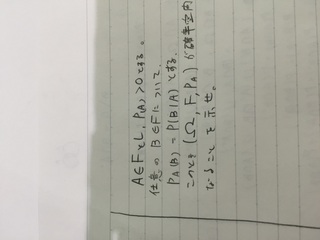 A∈Fとし、P(A)>0とする。
任意の B∈Fについて
P_A(B) = P(B|A) とする。
このとき (Ω, F, P_A) が確率空間
なること を示せ。